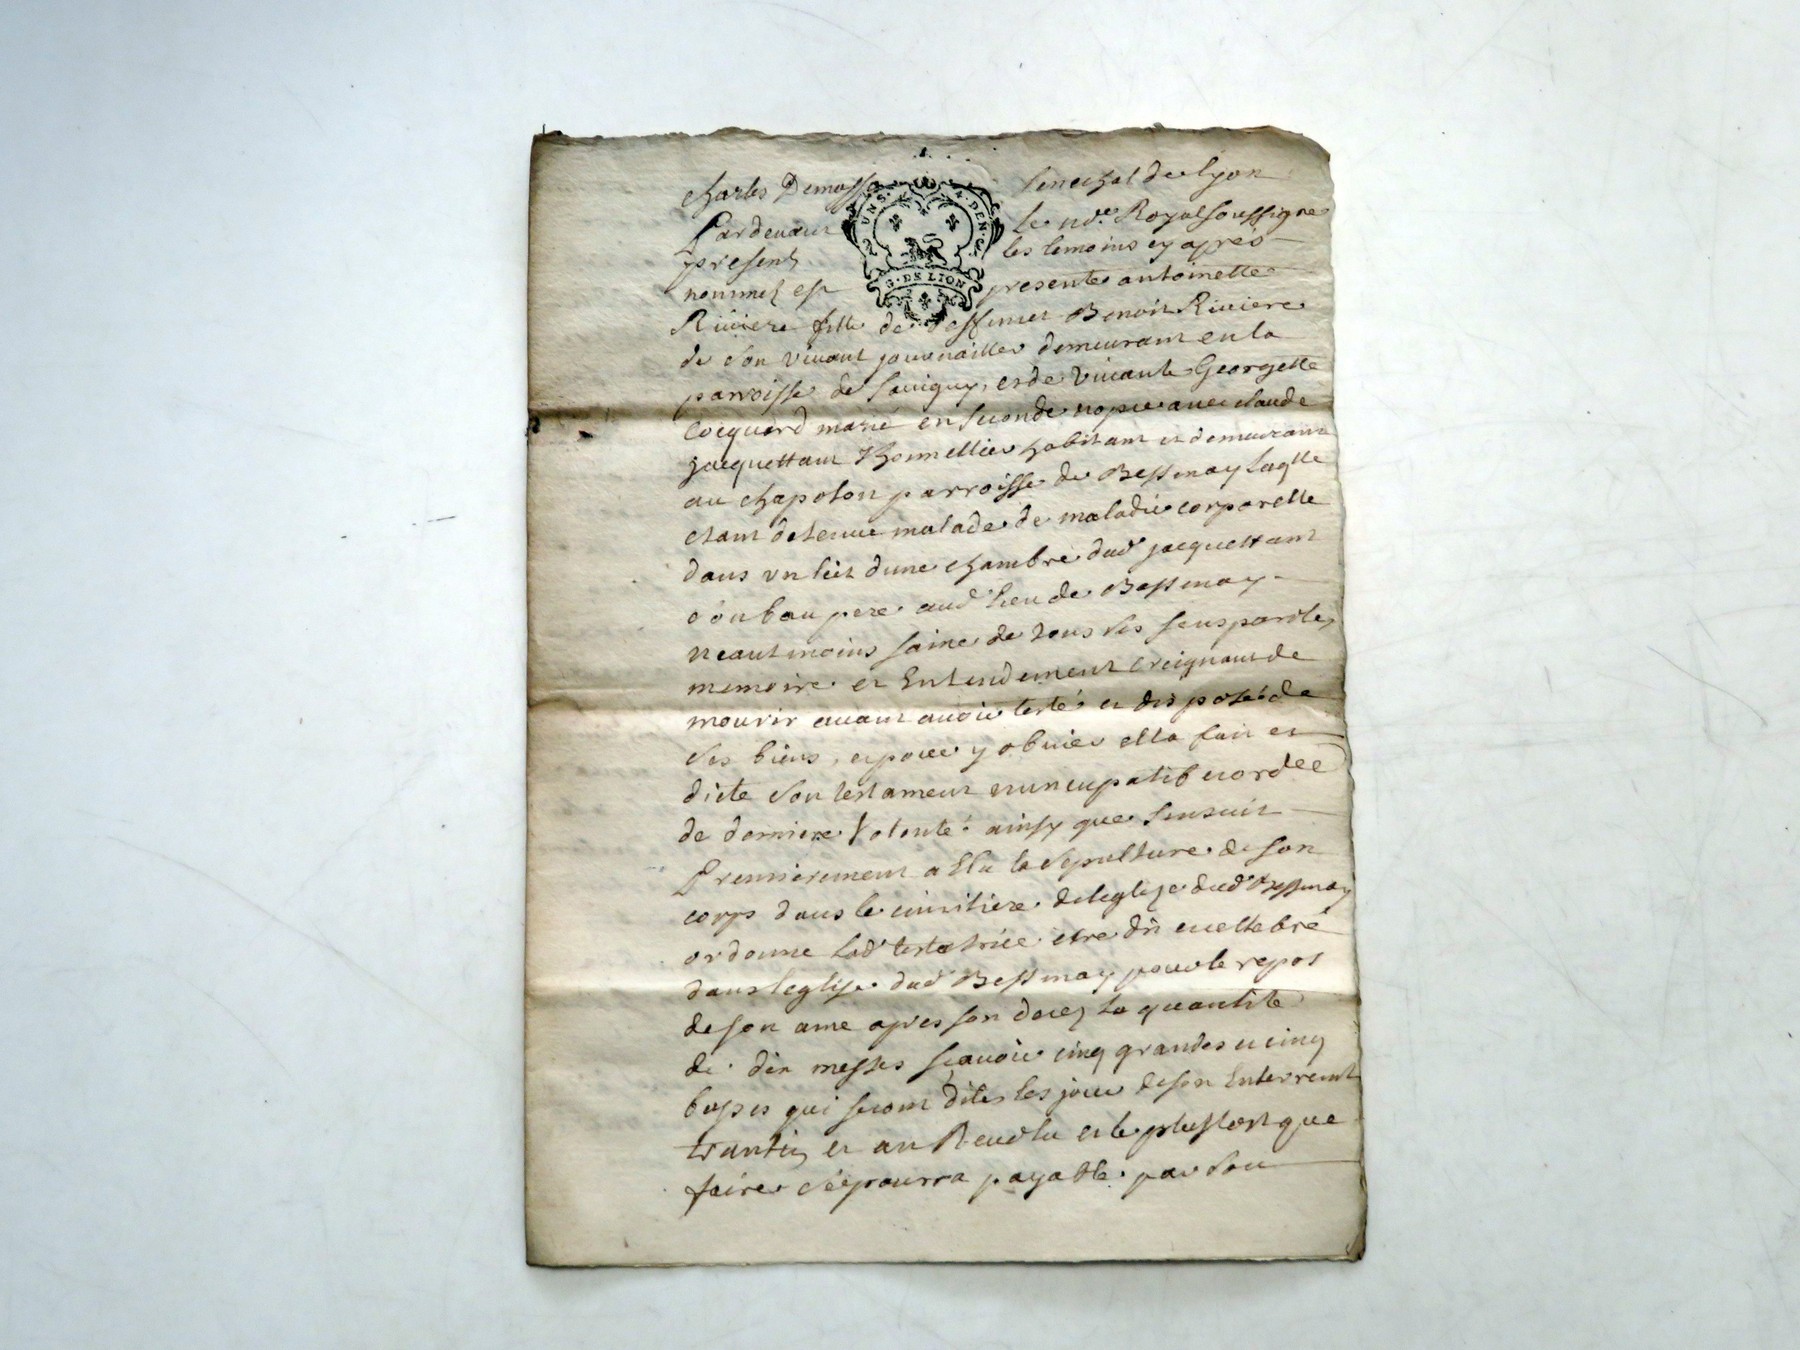 Charles Demasso senechal de Lyon
UN S. 4. DEN.
G. DE LION
Pardevant le no.re Royal soussigne
present les temoins cy apres
nommez est presente antoinette
Riviere fille de deffunct Benoit Riviere
de son vivant journaillier demeurant en la
parroisse de Savigny, et de vivante Georgette
Cocquard marié en seconde nopce avec claude
Jacquettant Thonnellier habitant et demeurant
au chapolon parroisse de Bessenay laqlle
etant detenue malade de maladie corporelle
dans un lict dune chambre dud Jacquettant
son bau pere aud lieu de Bessenay
neautmoins saine de tous ses sens parolle,
memoire et Entendement creignant de
mourir avant avoir testé et disposé de
ses biens, et pour y obvier elle a fait et
dicté son testament nuncupatif et ordce
de derniere Volonté ainsy que sensuit
Premierement a Elu la sepulture de son
corps dans le cimitiere de leglize dud Bessenay
ordonne lad testatrice etre dit et cellebré
dans leglise dud Bessenay pour le repos
de son ame apres son decez la quantité
de dix messes scavoir cinq grandes et cinq
basses qui seront dites les jour de son Enterremt
trantin et an Revolu et le plustost que
faire se pourra payable par son